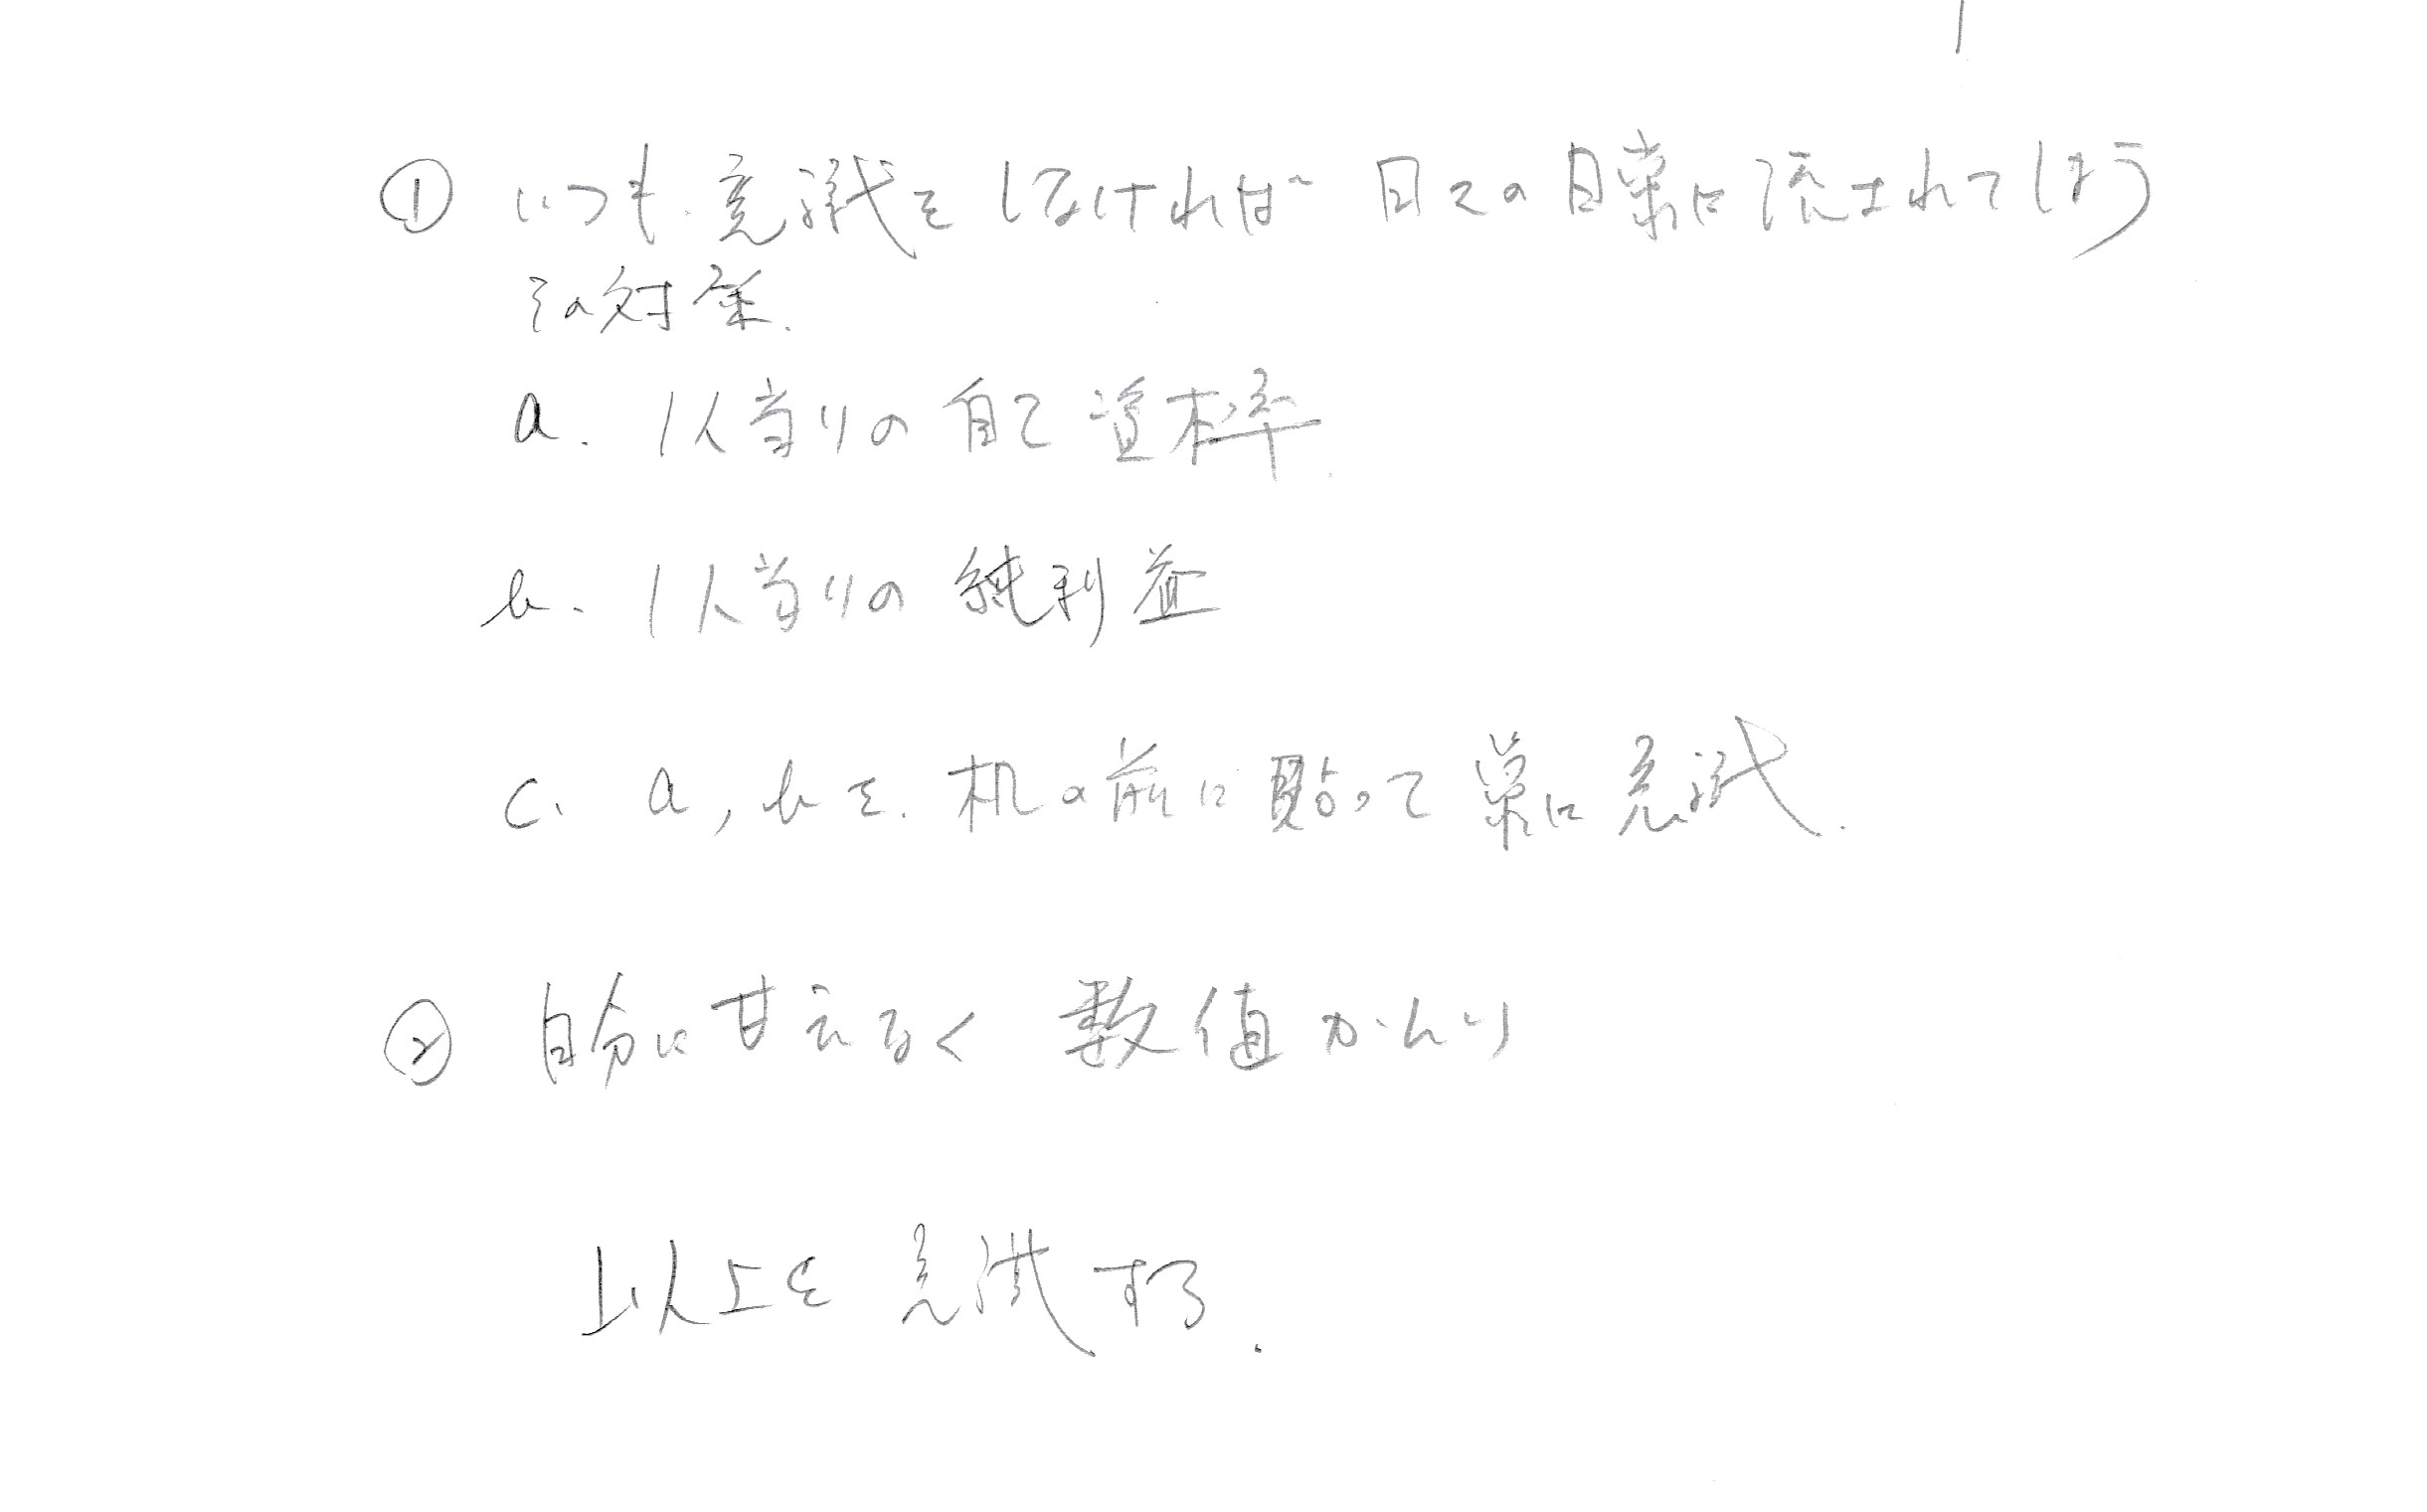 ① いつも意識をしなければ 日々の日常に流されてしまう
その対策.
a. 1人当りの自己資本率.
b. 1人当りの純利益
c. a, bを.机の前に貼って常に意識.
② 自分に甘えなく 数値かんり
以上を意識する.